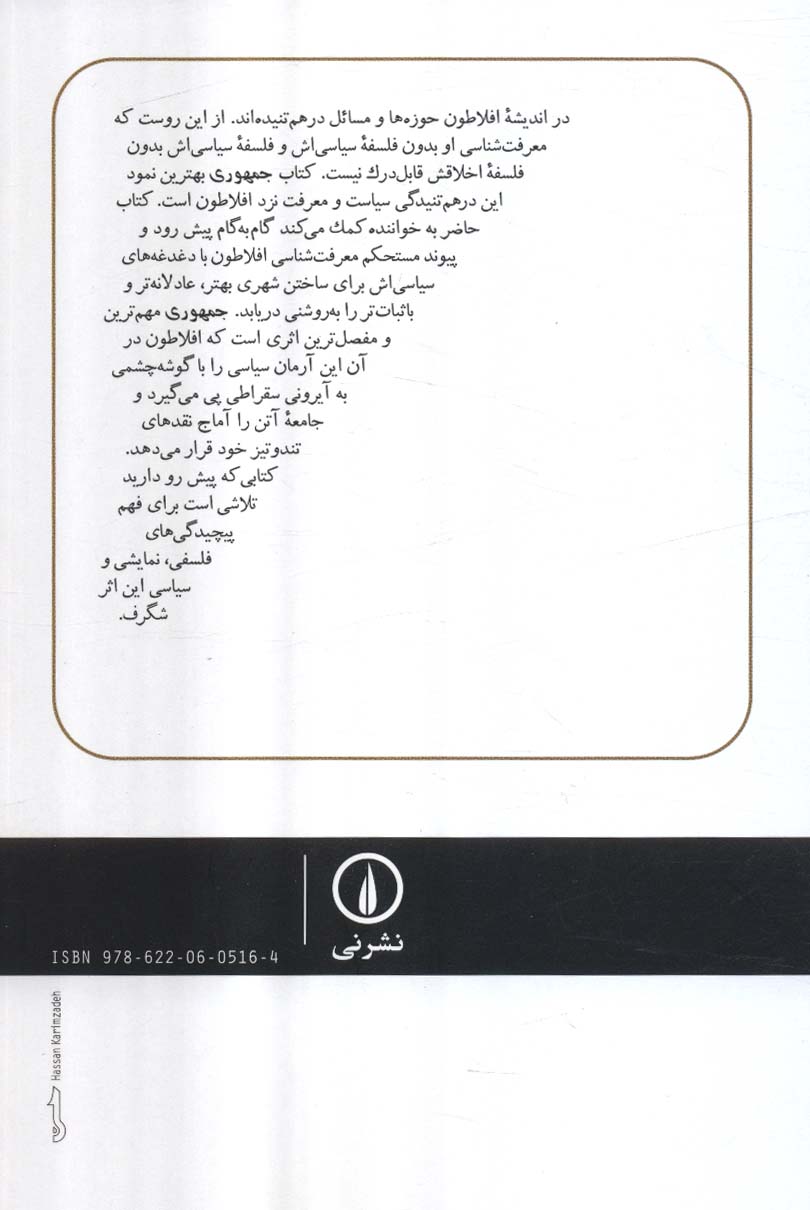 در اندیشهٔ افلاطون حوزه‌ها و مسائل درهم‌تنیده‌اند. از این روست که
معرفت‌شناسی او بدون فلسفهٔ سیاسی‌اش و فلسفهٔ سیاسی‌اش بدون
فلسفهٔ اخلاقش قابل‌درك نیست. کتاب جمهوری بهترین نمود
این درهم‌تنیدگی سیاست و معرفت نزد افلاطون است. کتاب
حاضر به خواننده کمك می‌کند گام‌به‌گام پیش رود و
پیوند مستحکم معرفت‌شناسی افلاطون با دغدغه‌های
سیاسی‌اش برای ساختن شهری بهتر، عادلانه‌تر و
باثبات‌تر را به‌روشنی دریابد. جمهوری مهم‌ترین
و مفصل‌ترین اثری است که افلاطون در
آن این آرمان سیاسی را با گوشه‌چشمی
به آیرونی سقراطی پی می‌گیرد و
جامعهٔ آتن را آماج نقدهای
تندوتیز خود قرار می‌دهد.
کتابی که پیش رو دارید
تلاشی است برای فهم
پیچیدگی‌های
فلسفی، نمایشی و
سیاسی این اثر
شگرف.
نشرنی
ISBN 978-622-06-0516-4
Hassan Karimzadeh